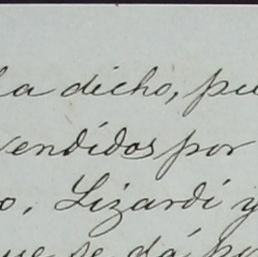 la dicho, pu
vendidos por
o. Lizardi y
que se dá, po